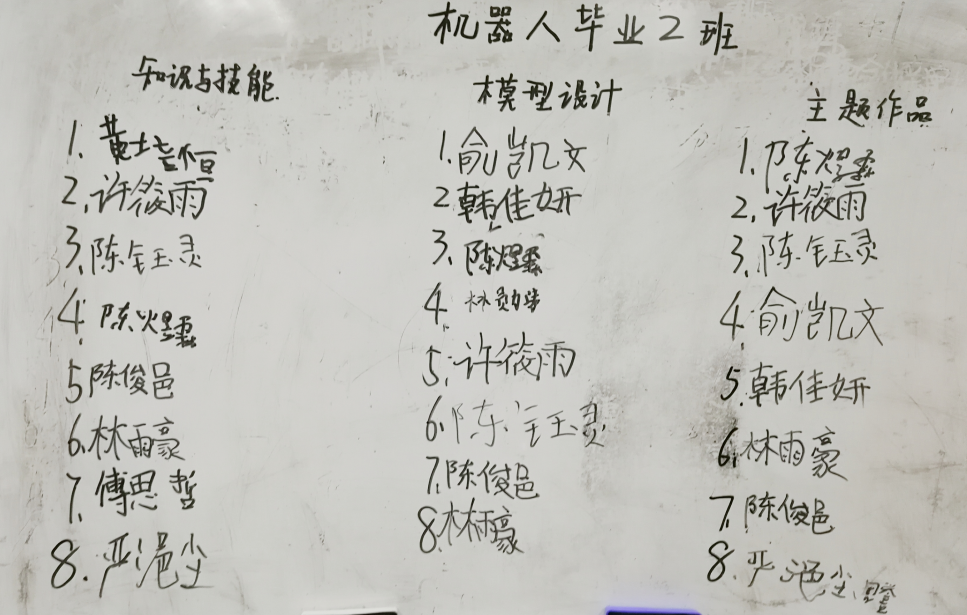 机器人毕业2班
知识与技能
1.黄
2.许筱雨
3.陈钰灵
4.陈煜
5陈俊邑
6.林雨豪
7.傅思哲
8.严浥尘
模型设计
1.俞凯文
2韩佳妍
3.陈煜
4.林
5.许筱雨
6.陈钰灵
7.陈俊邑
8.林雨豪
主题作品
1.陈煜
2.许筱雨
3.陈钰灵
4.俞凯文
5.韩佳妍
6.林雨豪
7.陈俊邑
8.严浥尘